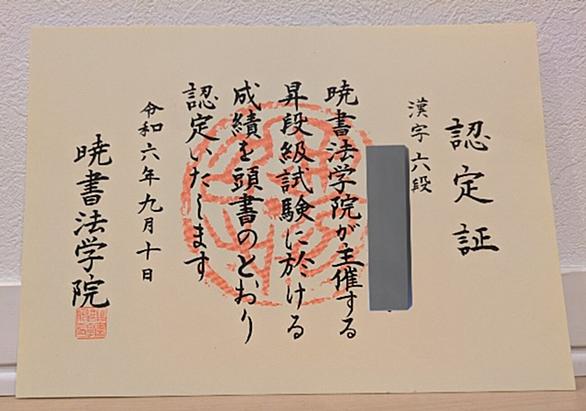 認定証
漢字六段
暁書法学院が主催する
昇段級試験に於ける
成績を頭書のとおり
認定いたします
令和六年九月十日
暁書法学院